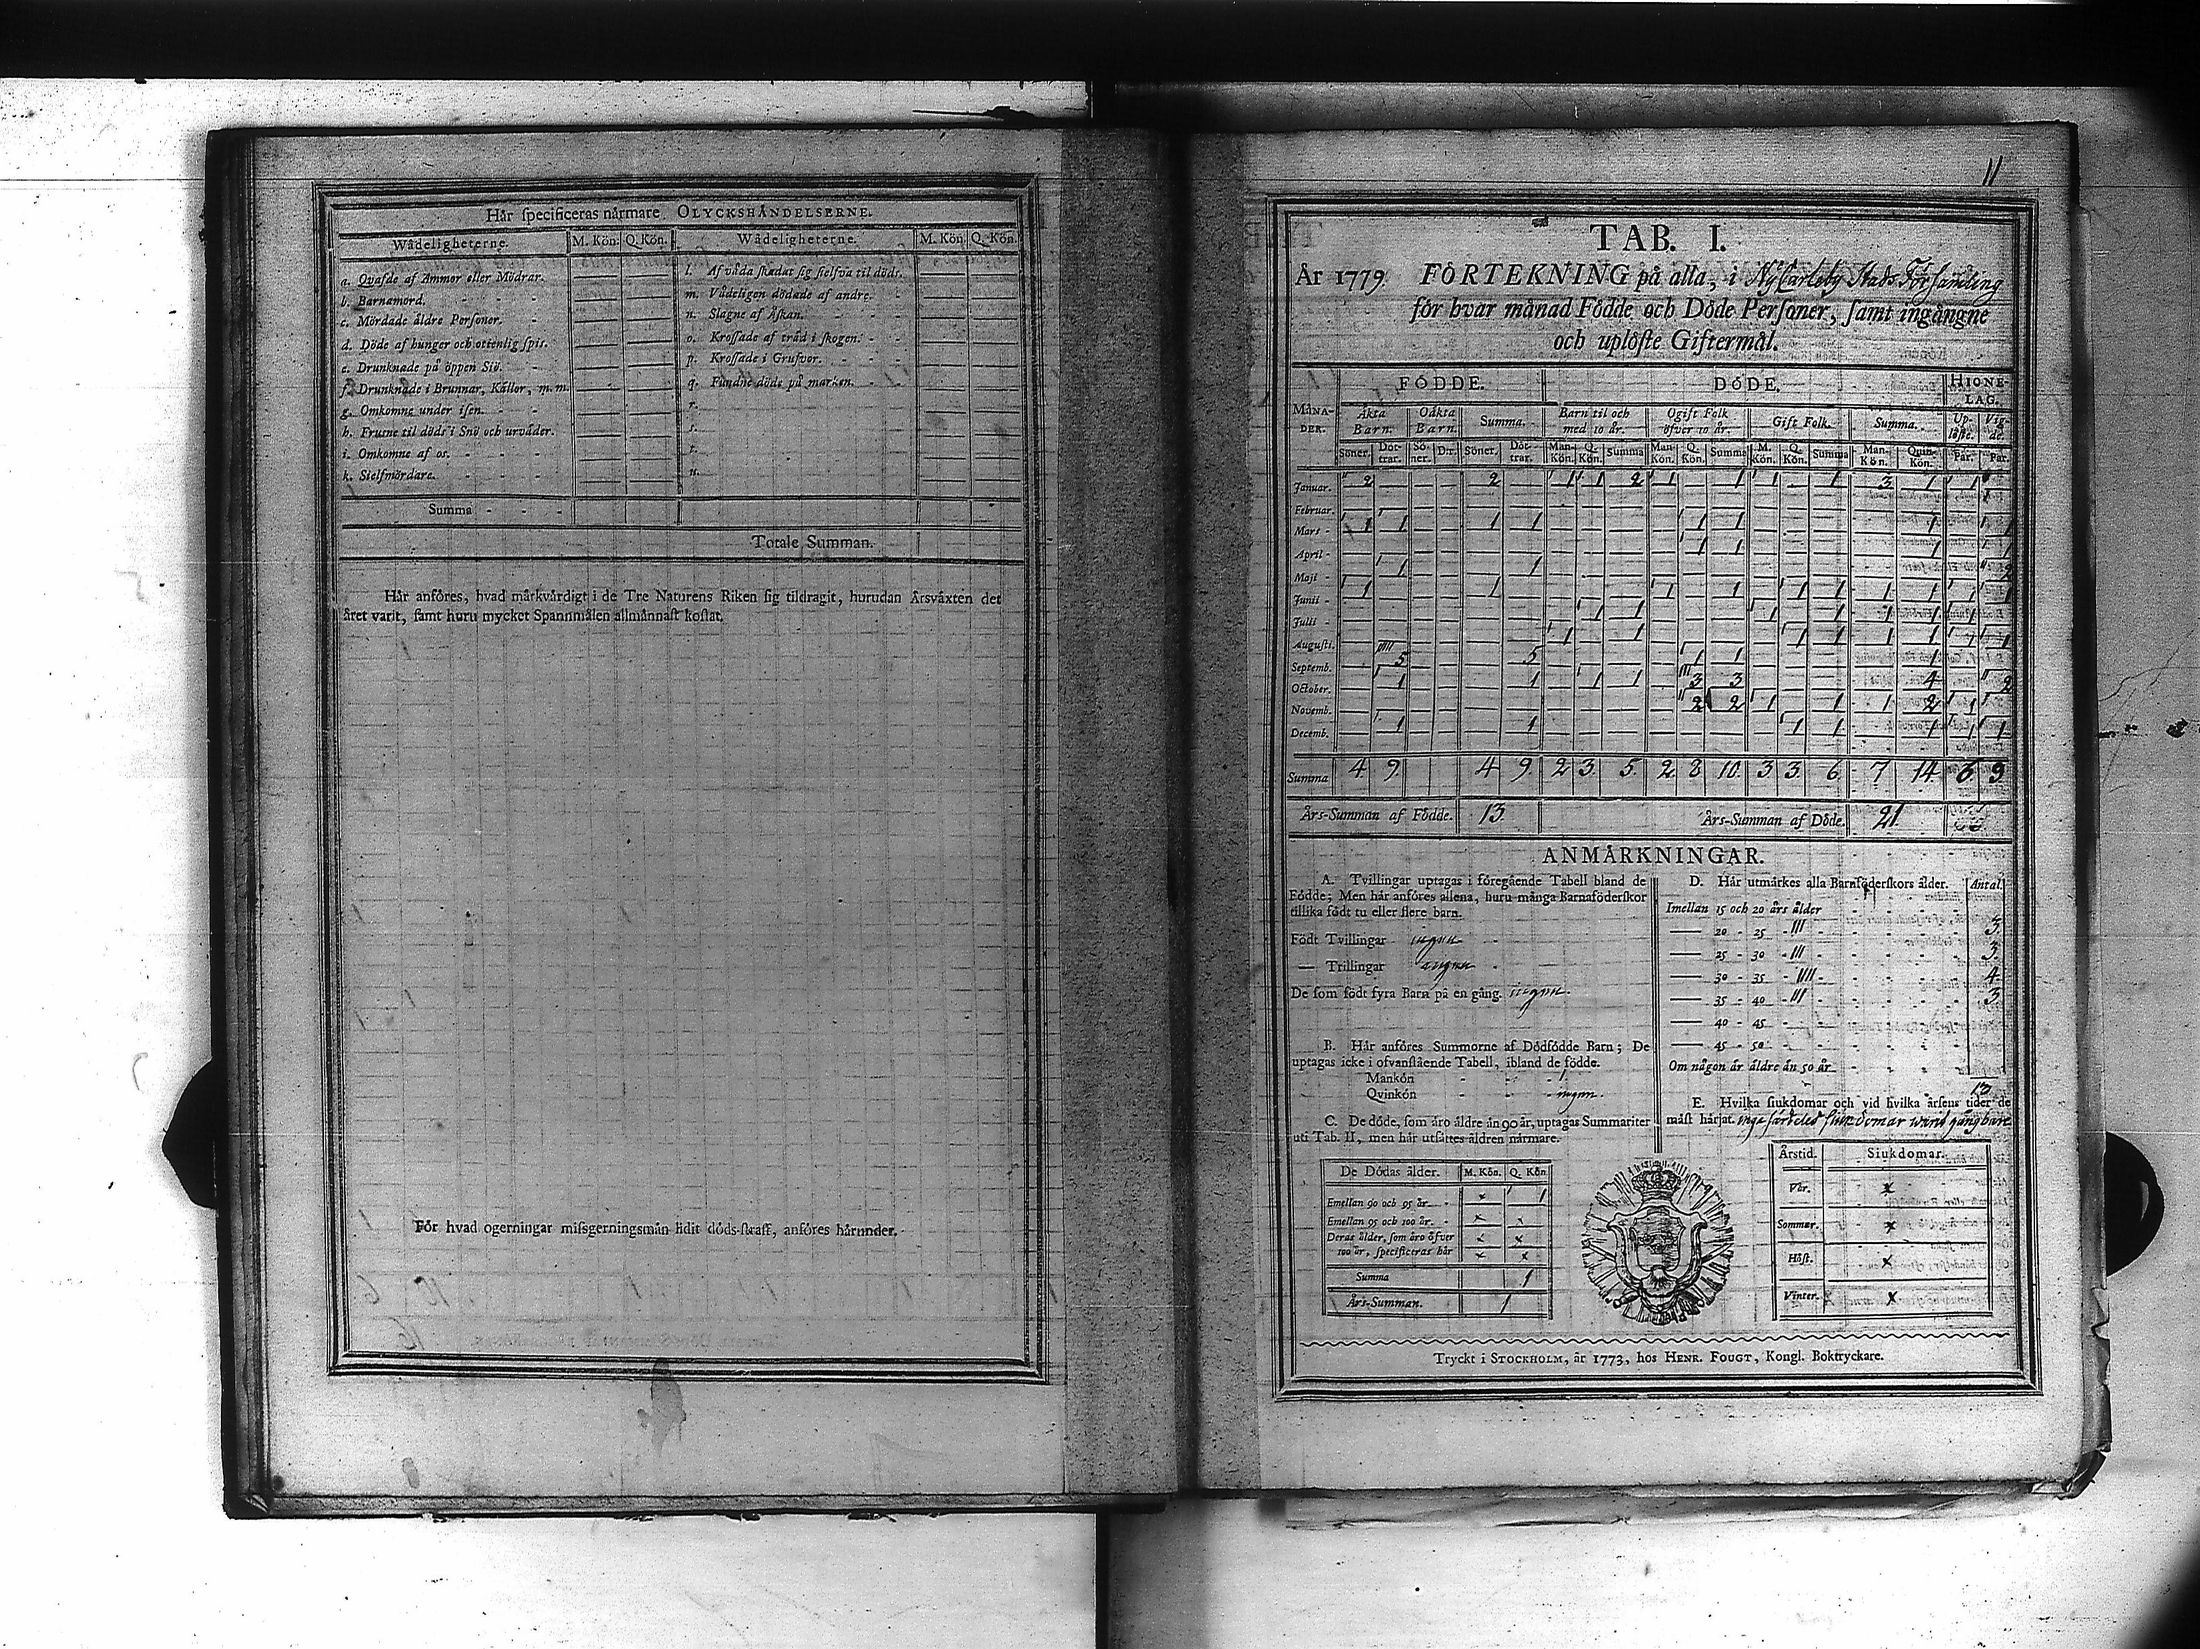 Hår specificeras nårmare OLYCKSHÅNDELSERNE.
Wådeligheterne. M. Kön. Q. Kön. Wådeligheterne. M. Kön. Q. Kön.
a. Qvafde af Ammor eller Mödrar. — — l. Af våda skadat sig sielfva til döds. — —
b. Barnamord. — — m. Vådeligen dödade af andre. — —
c. Mördade äldre Personer. — — n. Slagne af Åskan. — —
d. Döde af hunger och otienlig spis. — — o. Krossade af träd i skogen. — —
e. Drunknade på öppen Siö. — — p. Krossade i Grufvor. — —
f. Drunknade i Brunnar, Källor, m. m. — — q. Fundne döde på marken. — —
g. Omkomne under isen. — — r. — —
h. Frusne til döds i Snö och urväder. — — s. — —
i. Omkomne af os. — — t. — —
k. Sielfmördare. — — u. — —
Summa
Totale Summan.
Hår anföres, hvad mårkvårdigt i de Tre Naturens Riken sig tildragit, hurudan Årsvåxten det
året varit, samt huru mycket Spannmålen allmånnast kostat.
För hvad ogerningar missgerningsmån lidit döds-straff, anföres hårunder.
11
TAB. I.
År 1779. FÖRTEKNING på alla, i NyCarleby Stads Församling
för hvar månad Födde och Döde Personer, samt ingångne
och uplöste Giftermål.
MÅNADER. FÖDDE. DÖDE. HIONELAG.
Åkta Barn. Oåkta Barn. Summa. Barn til och med 10 år. Ogift Folk öfver 10 år. Gift Folk. Summa. Uplöste. Vigde.
Söner. Döttrar. Söner. D:r. Söner. Döttrar. Man-Kön. Q. Kön. Summa Man-Kön. Q. Kön. Summa M. Kön. Q. Kön. Summa Man-Kön. Quin-Kön. Par. Par.
Januar. 2 — — — 2 — 1 1 2 1 — 1 1 — 1 3 1 1
Februar.
Mars 1 1 — — 1 1 — — — — 1 1 — — — — 1 — 1
April — — — — — — — — — — 1 1 — — — — 1
Maji — 1 — — — 1 — — — — — — — — — — — — 2
Junii 1 — — — 1 — — — — 1 — 1 1 — 1
Julii
Augusti.
Septemb. — 5 — — — 5 — — — — 1 1 — — — — 1
October. — 1 — — — 1 — 1 1 — 3 3 — — — — 4 — 2
Novemb. — — — — — — — — — — 2 2 1 — 1 1 2 1
Decemb. — 1 — — — 1 — — — — — — — 1 1 — 1 1 1
Summa 4. 9. 4 9. 2 3. 5. 2 8 10. 3 3. 6. 7 14. 6 9
Års-Summan af Födde. 13. Års-Summan af Döde. 21.
ANMÅRKNINGAR.
A. Tvillingar uptagas i föregående Tabell bland de
Födde; Men hår anföres allena, huru många Barnaföderskor
tillika födt tu eller flere barn.
Födt Tvillingar ingen
— Trillingar ingen
De som födt fyra Barn på en gång. ingen.
B. Hår anföres Summorne af Dödfödde Barn; De
uptagas icke i ofvanstående Tabell, ibland de födde.
Mankön 1.
Qvinkön ingen.
C. De döde, som åro åldre ån 90 år, uptagas Summariter
uti Tab. II, men hår utsåttes åldren nårmare.
De Dödas ålder. M. Kön. Q. Kön.
Emellan 90 och 95 år. × 1
Emellan 95 och 100 år. × ×
Deras ålder, som åro öfver × ×
100 år, specificeras hår × ×
Summa 1
Års-Summan. 1
D. Hår utmårkes alla Barnföderskors ålder. Antal.
Imellan 15 och 20 års ålder
— 20 - 25 III 3.
— 25 - 30 III 3.
— 30 - 35 IIII 4
— 35 - 40 III 3
— 40 - 45
— 45 - 50
Om någon år åldre ån 50 år
13
E. Hvilka siukdomar och vid hvilka årsens tider de
måst hårjat. inga särdeles siukdomar warit gångbare.
Årstid. Siukdomar.
Vår. ×
Sommar. ×
Höst. ×
Vinter. ×
Tryckt i STOCKHOLM, år 1773, hos HENR. FOUGT, Kongl. Boktryckare.